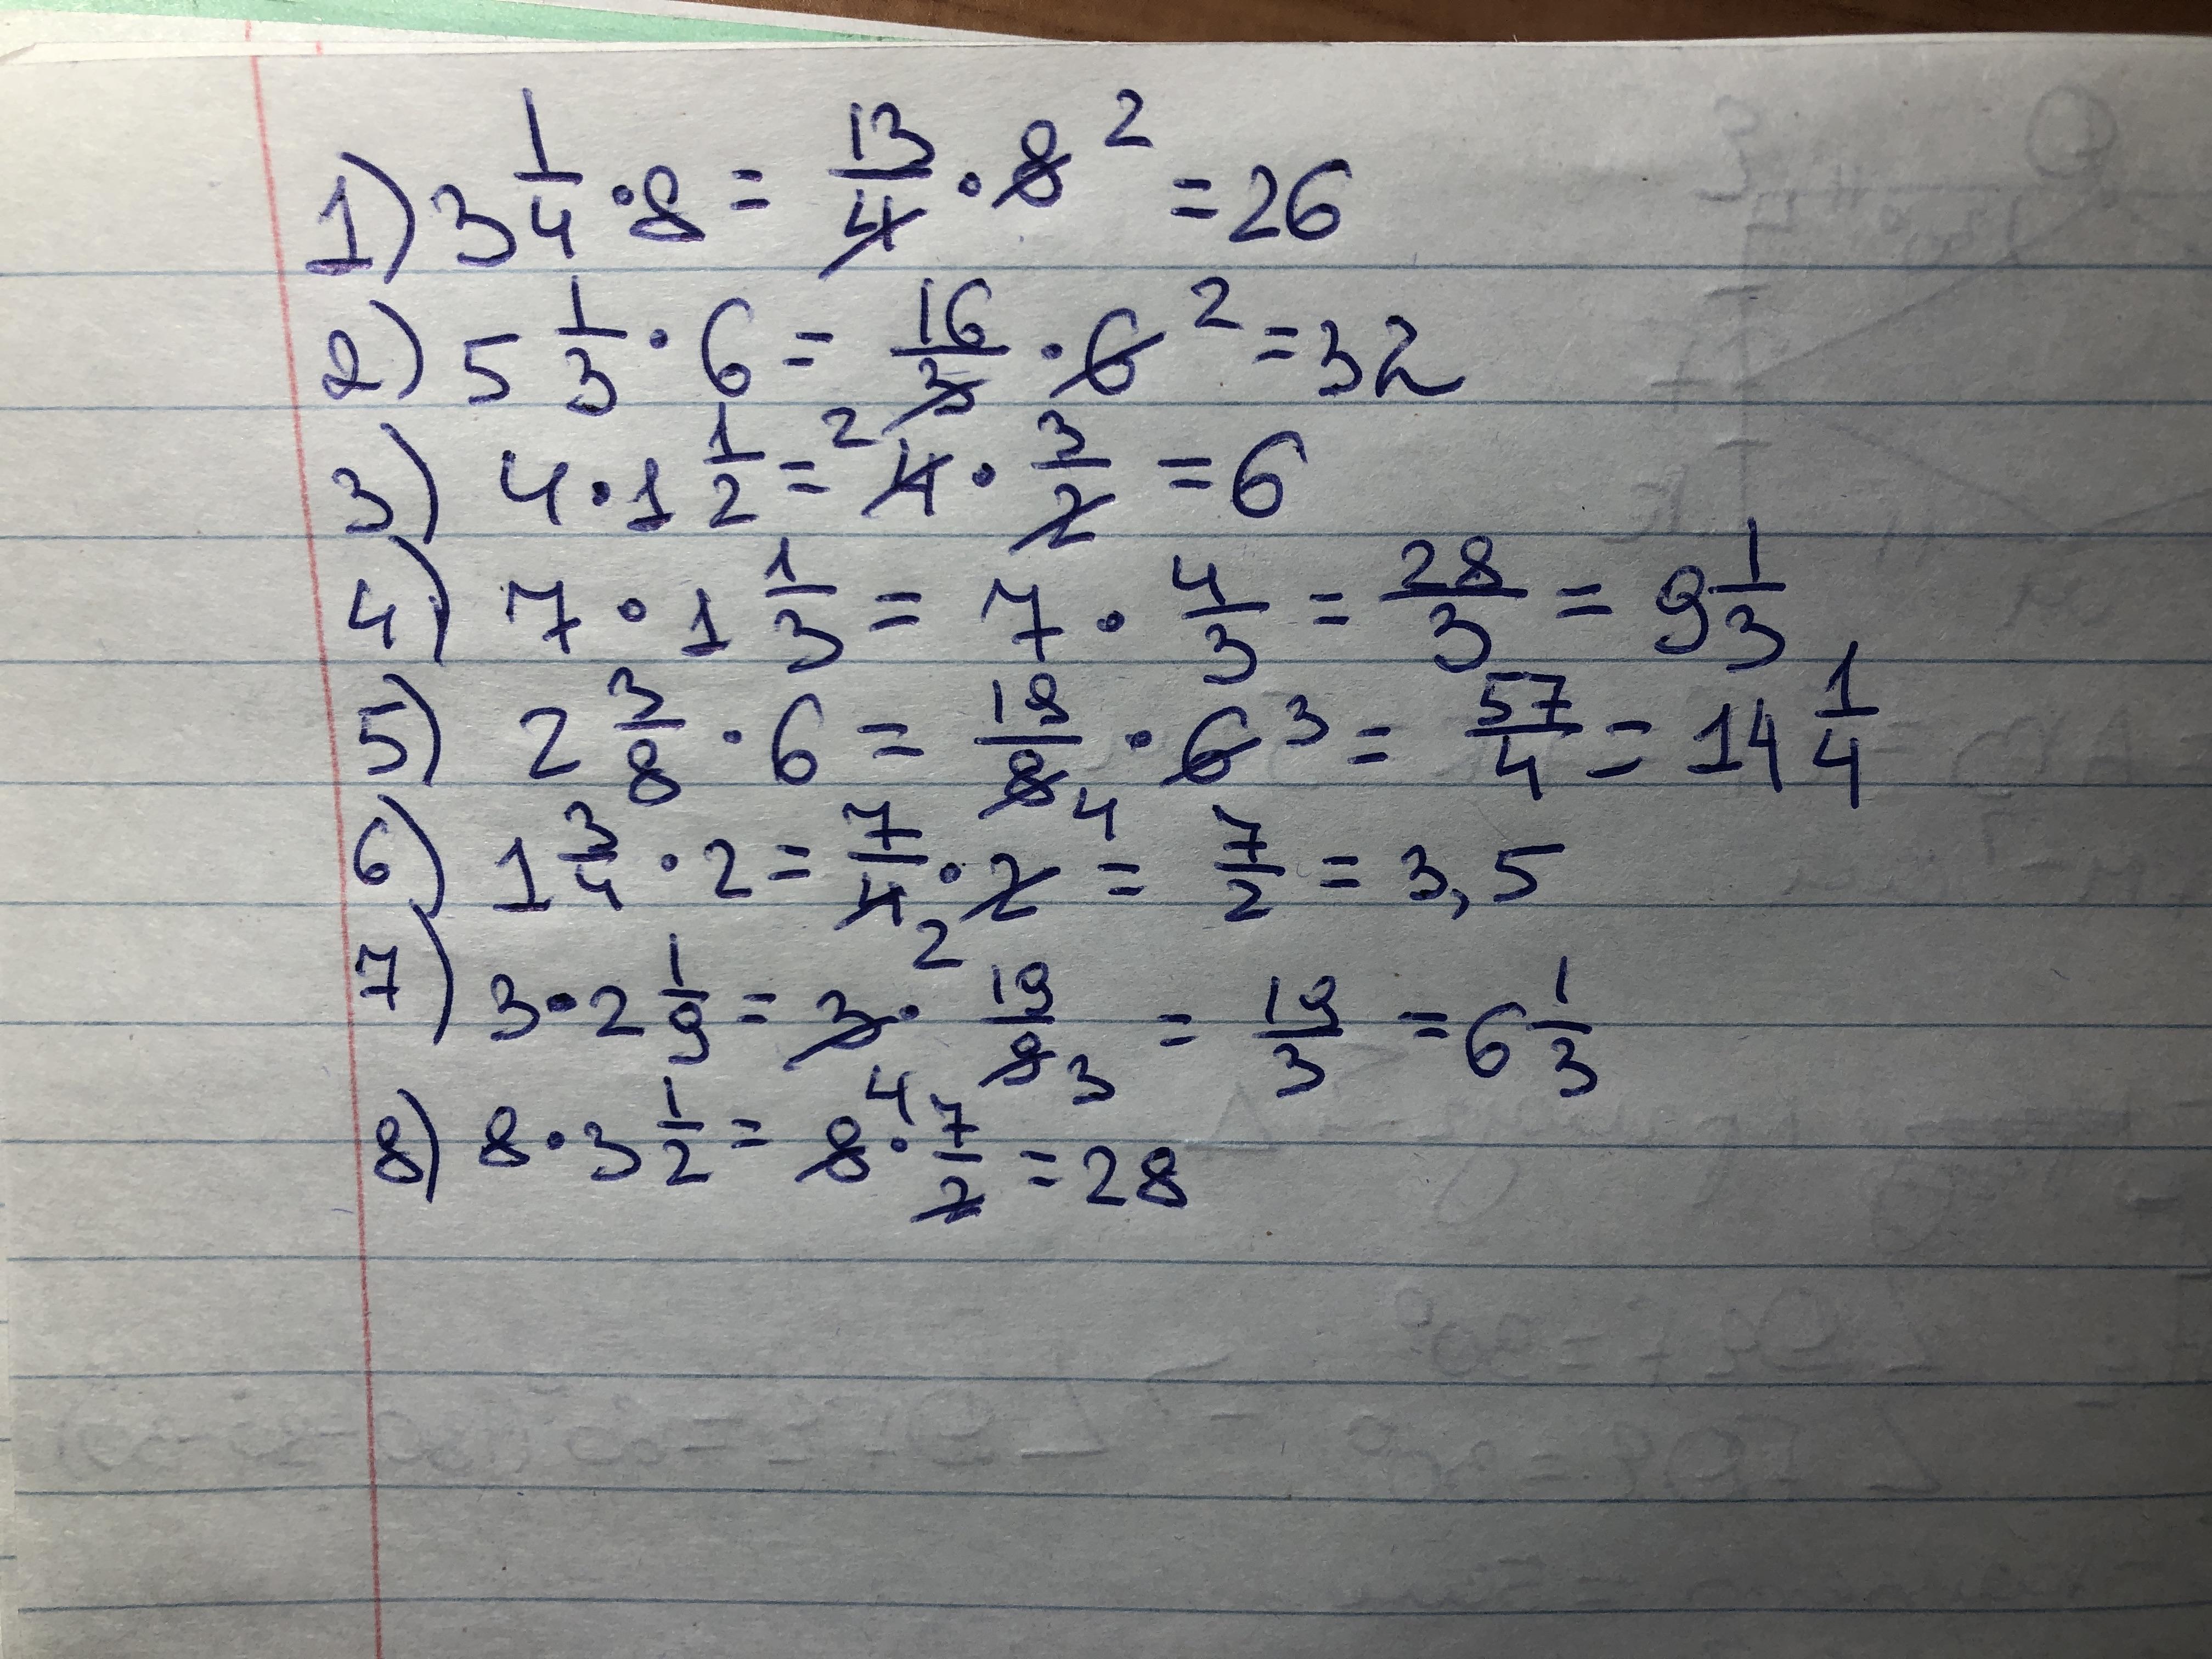 1) 3 1/4 · 8 = 13/4 · 8 2 = 26
2) 5 1/3 · 6 = 16/3 · 6 2 = 32
3) 4 · 1 1/2 = 2 4 · 3/2 = 6
4) 7 · 1 1/3 = 7 · 4/3 = 28/3 = 9 1/3
5) 2 3/8 · 6 = 19/8 4 · 6 3 = 57/4 = 14 1/4
6) 1 3/4 · 2 = 7/4 2 · 2 = 7/2 = 3,5
7) 3 · 2 1/9 = 3 · 19/9 3 = 19/3 = 6 1/3
8) 8 · 3 1/2 = 8 4 · 7/2 = 28